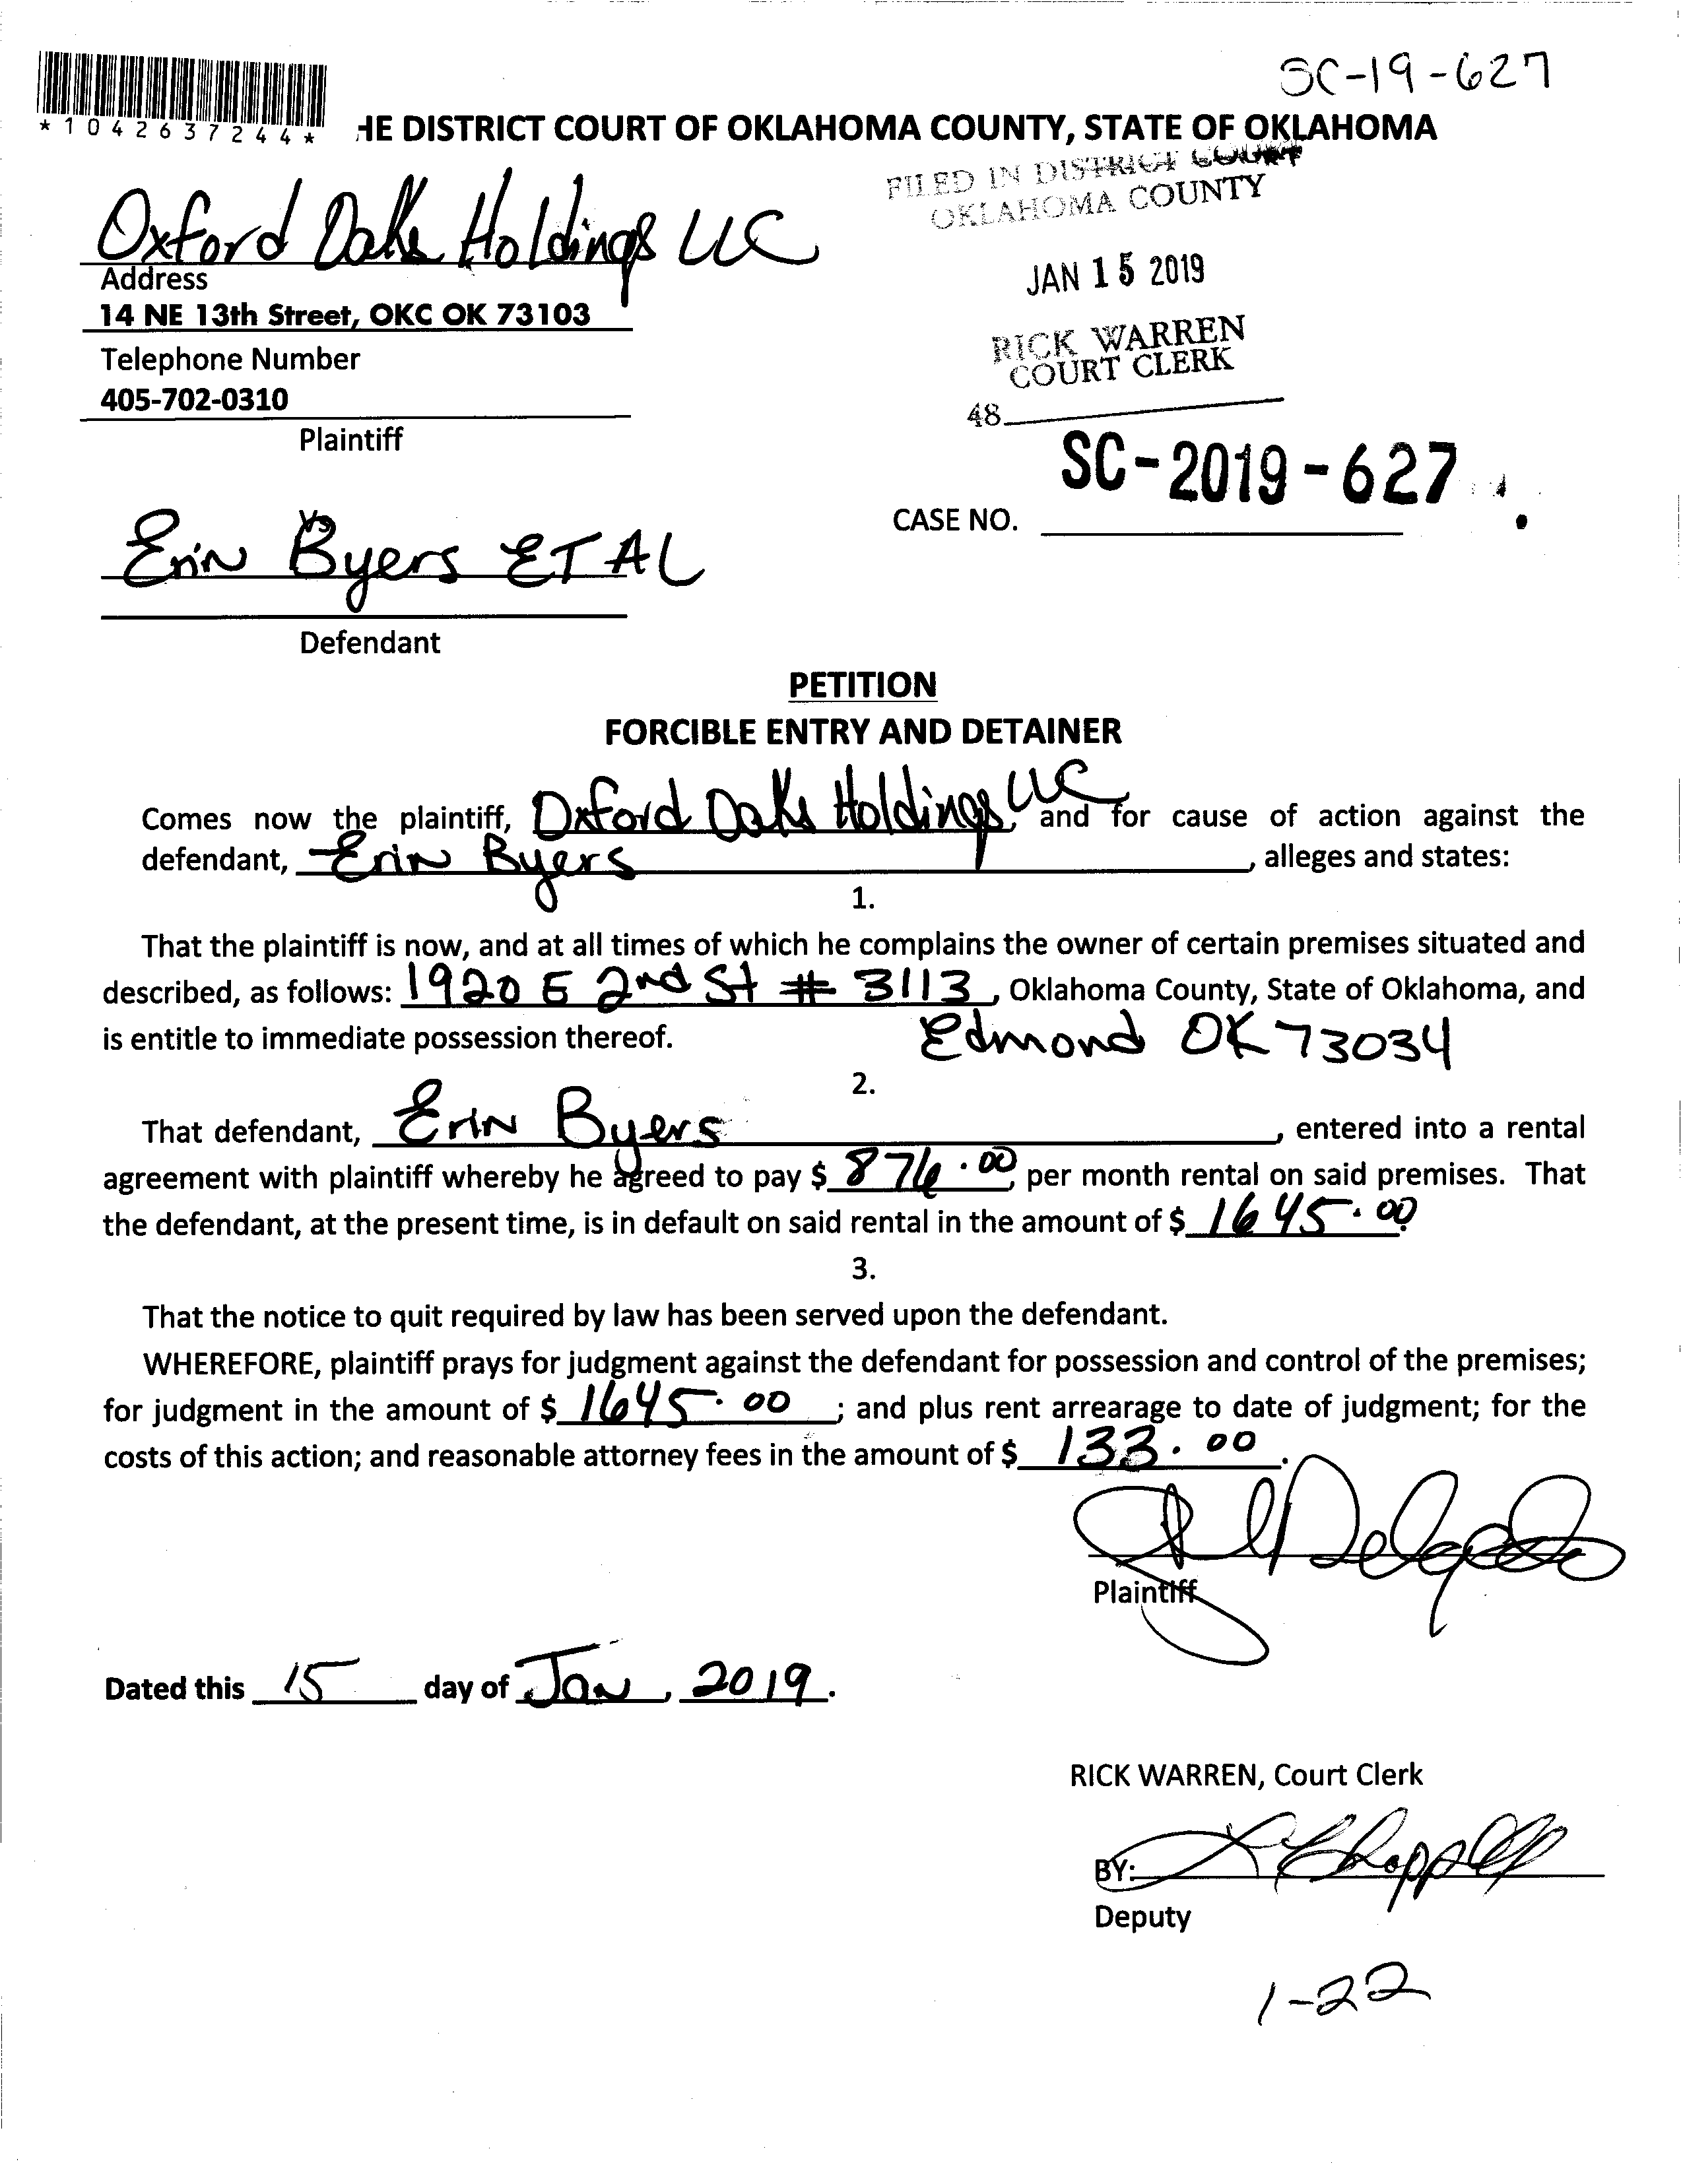 SC-19-627
*1042637244*
HE DISTRICT COURT OF OKLAHOMA COUNTY, STATE OF OKLAHOMA
FILED IN DISTRICT COURT
OKLAHOMA COUNTY
JAN 15 2019
RICK WARREN
COURT CLERK
48
Oxford Oaks Holdings LLC
Address
14 NE 13th Street, OKC OK 73103
Telephone Number
405-702-0310
Plaintiff
SC-2019-627
CASE NO.
Vs
Erin Byers ET AL
Defendant
PETITION
FORCIBLE ENTRY AND DETAINER
Comes now the plaintiff, Oxford Oaks Holdings LLC, and for cause of action against the
defendant, Erin Byers, alleges and states:
1.
That the plaintiff is now, and at all times of which he complains the owner of certain premises situated and
described, as follows: 1920 E 2nd St # 3113, Oklahoma County, State of Oklahoma, and
is entitle to immediate possession thereof. Edmond OK 73034
2.
That defendant, Erin Byers, entered into a rental
agreement with plaintiff whereby he agreed to pay $ 876.00, per month rental on said premises. That
the defendant, at the present time, is in default on said rental in the amount of $ 1645.00.
3.
That the notice to quit required by law has been served upon the defendant.
WHEREFORE, plaintiff prays for judgment against the defendant for possession and control of the premises;
for judgment in the amount of $ 1645.00; and plus rent arrearage to date of judgment; for the
costs of this action; and reasonable attorney fees in the amount of $ 133.00.
Delgado
Plaintiff
Dated this 15 day of Jan, 2019.
RICK WARREN, Court Clerk
BY:
Deputy
1-22